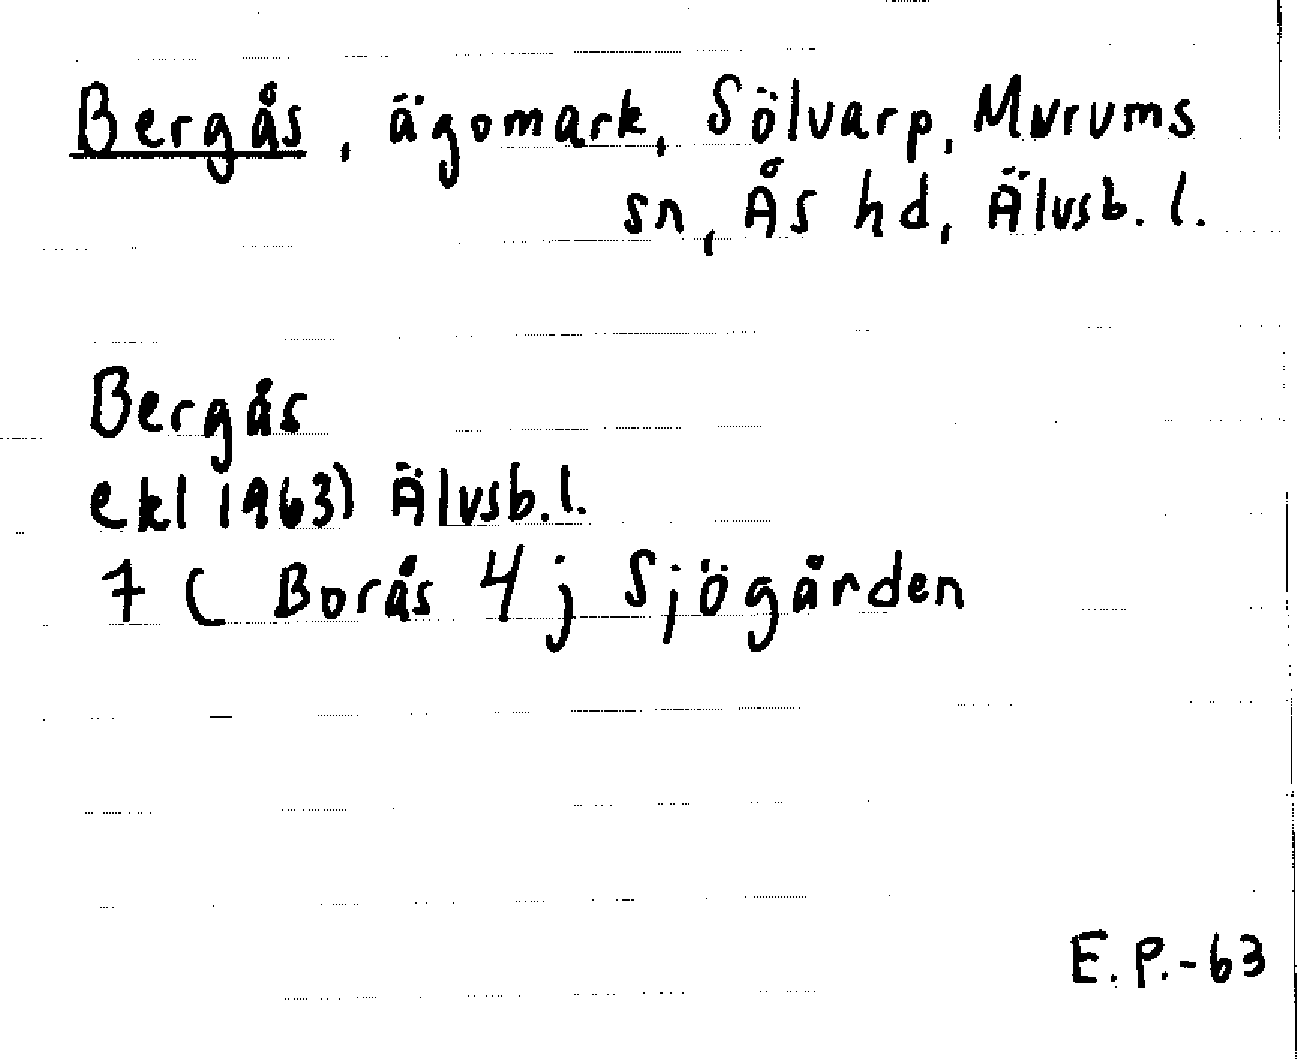 Bergås, ägomark, Sölvarp, Murums
sn, Ås hd, Älvsb. l.
Bergås
ekl 1963) Älvsb. l.
7 C Borås 4 j Sjögården
E. P. - 63